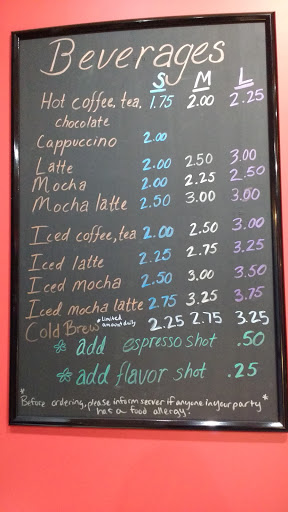 Beverages
S M L
Hot coffee, tea, 1.75 2.00 2.25
chocolate
Cappuccino 2.00
Latte 2.00 2.50 3.00
Mocha 2.00 2.25 2.50
Mocha latte 2.50 3.00 3.00
Iced coffee, tea 2.00 2.50 3.00
Iced latte 2.25 2.75 3.25
Iced mocha 2.50 3.00 3.50
Iced mocha latte 2.75 3.25 3.75
Cold Brew *limited amount daily 2.25 2.75 3.25
* add espresso shot .50
* add flavor shot .25
*Before ordering, please inform server if anyone in your party*
has a food allergy.